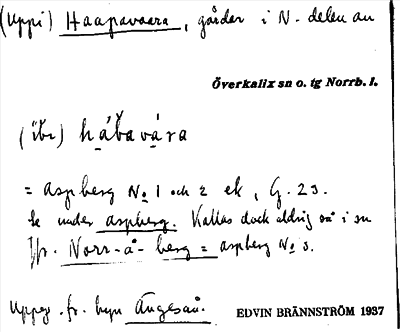 (Uppi) Haapavaara, gårdar i N. delen av
Överkalix sn o. tg Norrb. l.
(ïbɩ) hábavára
= aspberg No 1 och 2 ek, G. 23.
Se under aspberg. Kallas dock aldrig så i sn
Jfr. Norr-å-berg = aspberg No 3.
Uppg. fr. byn Ängeså.
EDVIN BRÄNNSTRÖM 1937